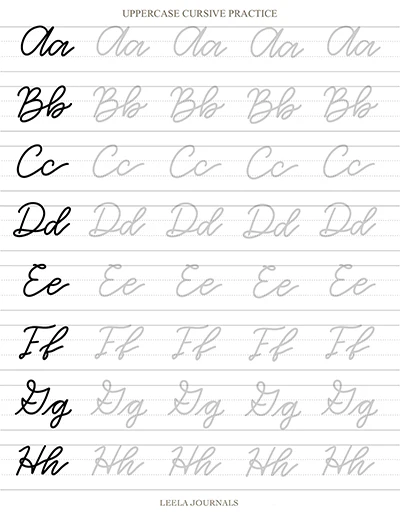 UPPERCASE CURSIVE PRACTICE
Aa Aa Aa Aa Aa
Bb Bb Bb Bb Bb
Cc Cc Cc Cc Cc
Dd Dd Dd Dd Dd
Ee Ee Ee Ee Ee
Ff Ff Ff Ff Ff
Gg Gg Gg Gg Gg
Hh Hh Hh Hh Hh
LEELA JOURNALS